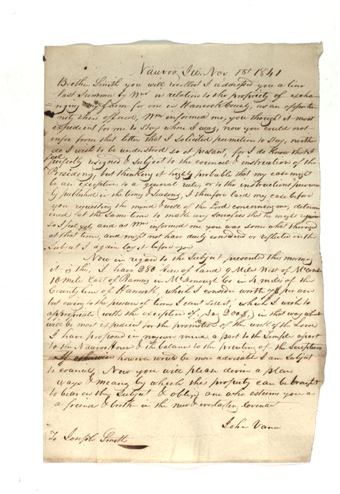 Nauvoo Ill. Nov 1st 1841
Brother Smith you will recollect I addressed you a line
last Summer by Mr in relation to the property of exchan
ging my farm for one in Hancock County, as an opportu
nity then offered, Mr informed me, you thought it most
expedient for me to stay where I was, now you could not
infer from that letter that I solicited permission to Stay neither
do I wish to be understood so at present, for I do know that I
perfectly resigned & Subject to the council & instruction of the
Presidency, but thinking it highly probable that my case might
be an exception to a general rule, or to the instructions
published in the times & Seasons, I therefore laid my case before
you requesting the council of the Lord concerning me, determ
ined at the same time to make any Sacrifice that might be required
and as Mr informed me you was some what through
at that time, and might not have duly considered or reflected on the
Subject I again lay it before you
Now in regard to the Subject presented this morning
it is this, I have 280 Acres of land 9 Miles West of
18 mile East of Ramus in McDonough Co in 4 miles of the
County line of Hancock, which I consider worth
but owing to the pressure of times I cant sell it, which I wish to
appropriate with the exception of, say in that way which
will be most expedient for the promotion of the work of the Lord
I have proposed in my own mind a part to the Temple a part
to the Nauvoo House & the balance to the printing of the Scriptures
If otherwise however would be more advisable I am Subject
to council, Now you will please devise a plan
ways & means by which this property can be brought
to bear on this Subject & oblige one who esteems you as
a friend & brother in the new & everlasting Covenant
John Vance
To Joseph Smith